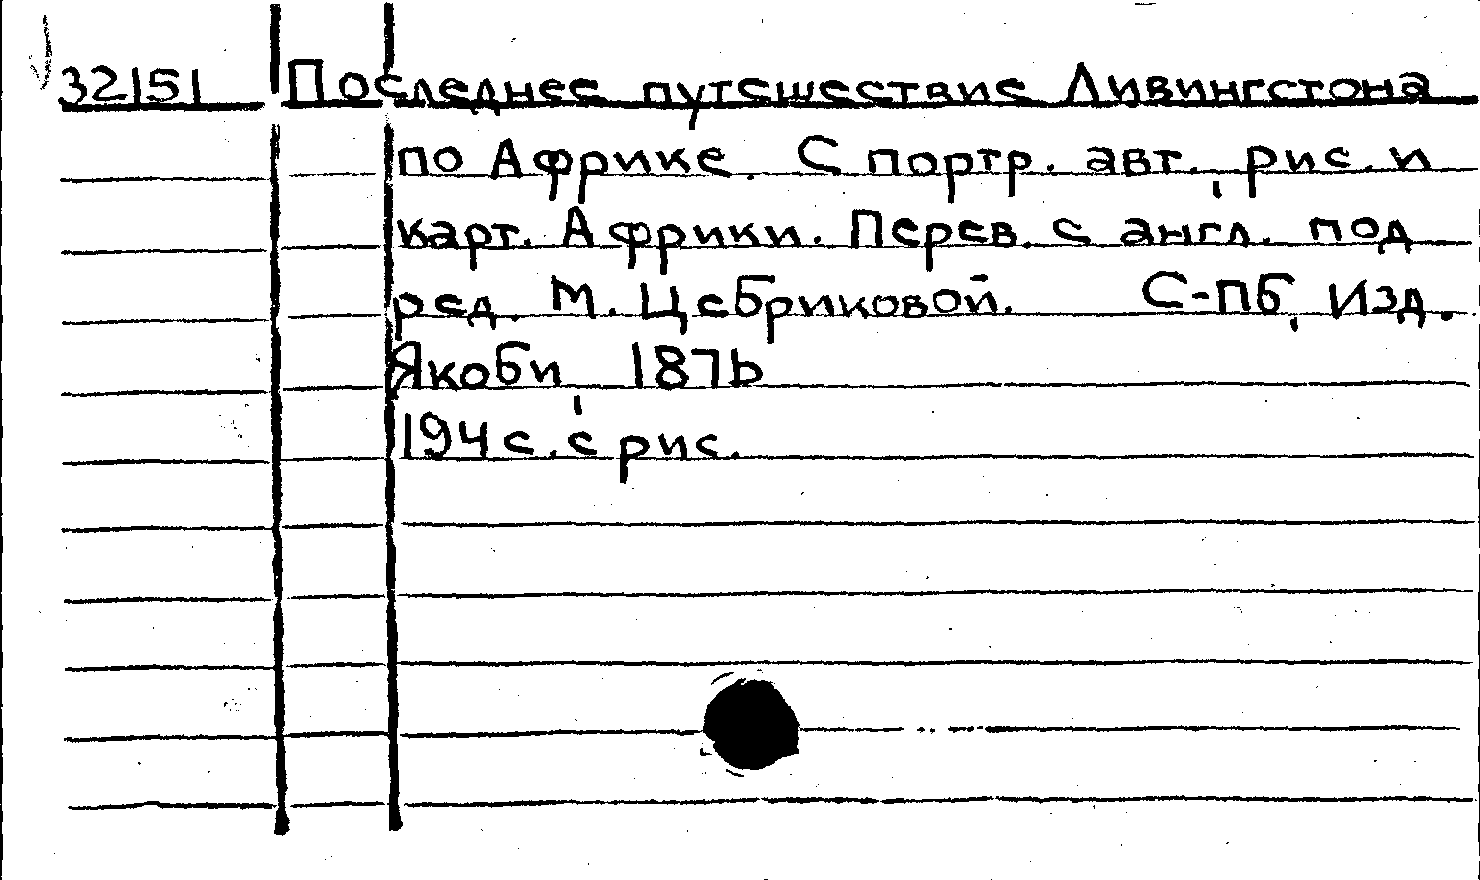 32151 Последнее путешествие Ливингстона
по Африке. С портр. авт., рис. и
карт. Африки. Перев. с англ. под
ред. М. Цебриковой. С-Пб, Изд.
Якоби, 1876
194 с. с рис.